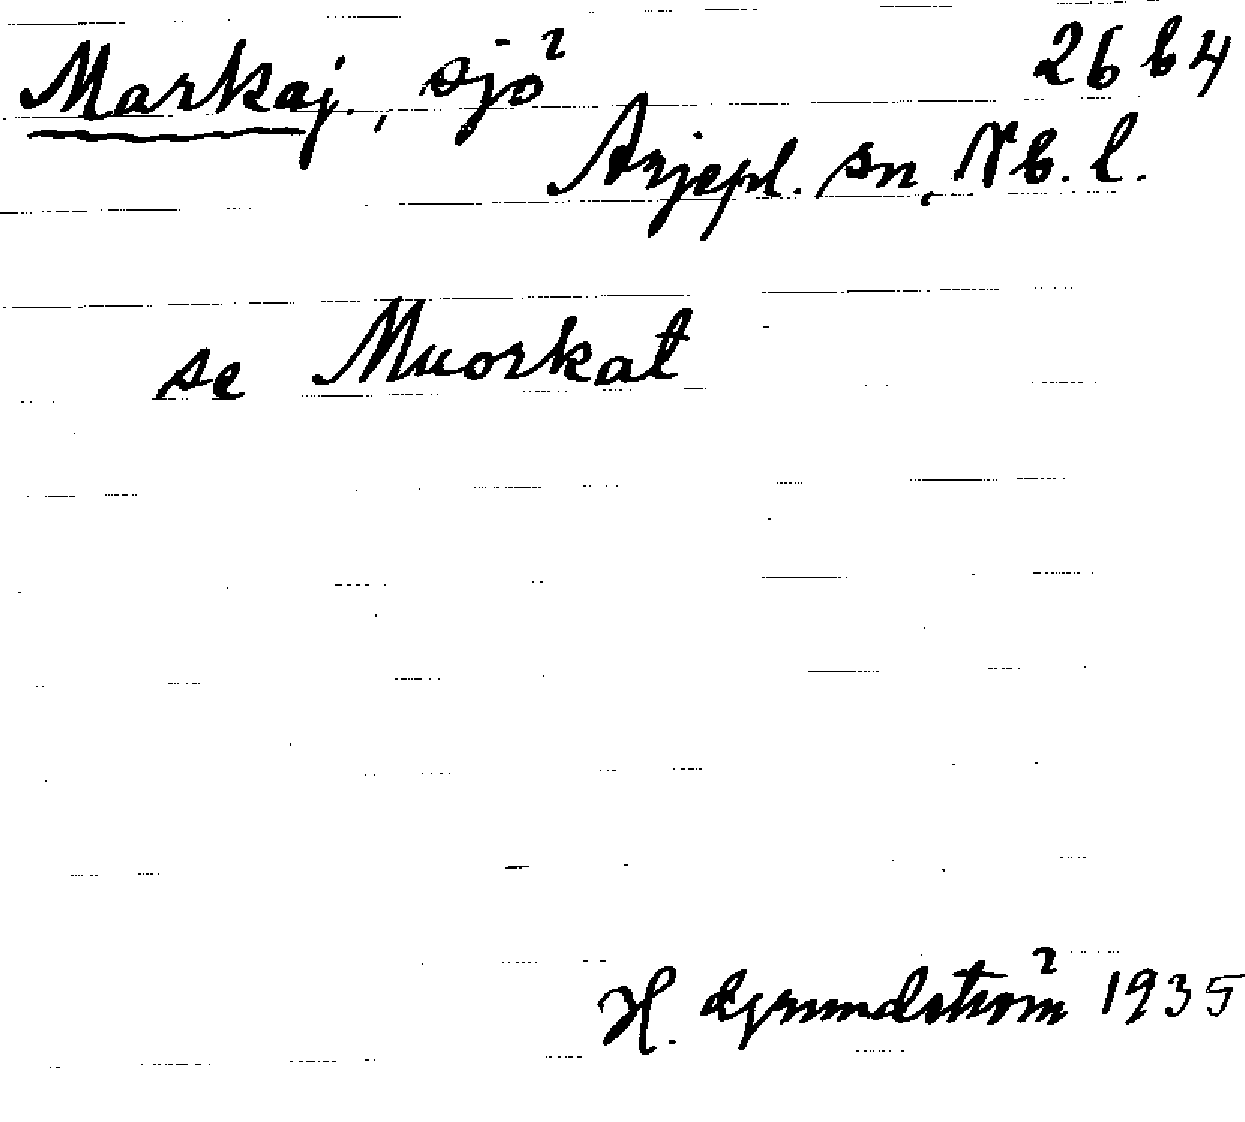 Markaj, sjö 26 b 4
Arjepl. sn, Nb. l.
se Muorkat
H. Grundström 1935